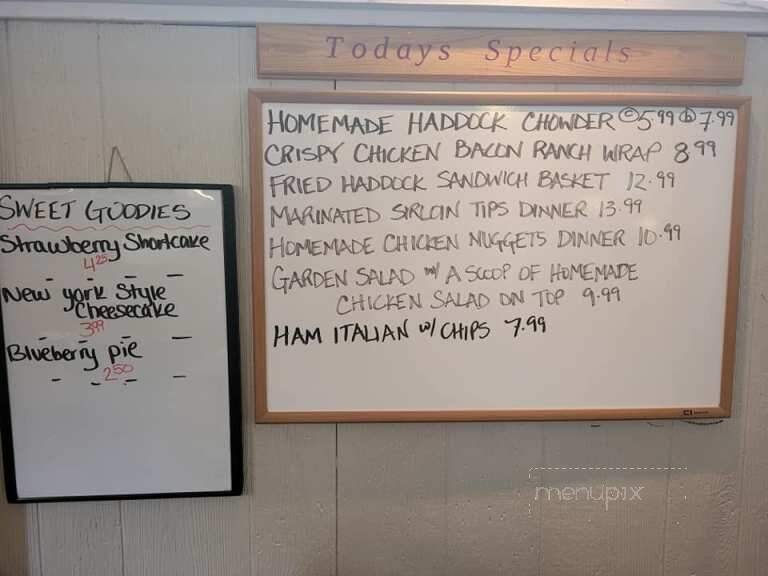 Todays Specials
HOMEMADE HADDOCK CHOWDER Ⓒ5.99 ⓑ7.99
CRISPY CHICKEN BACON RANCH WRAP 8.99
FRIED HADDOCK SANDWICH BASKET 12.99
MARINATED SIRLOIN TIPS DINNER 13.99
HOMEMADE CHICKEN NUGGETS DINNER 10.99
GARDEN SALAD w/ A SCOOP OF HOMEMADE
CHICKEN SALAD ON TOP 9.99
HAM ITALIAN w/ CHIPS 7.99
SWEET GOODIES
Strawberry Shortcake
4.25
New york Style
Cheesecake
3.99
Blueberry pie
2.50
menupix